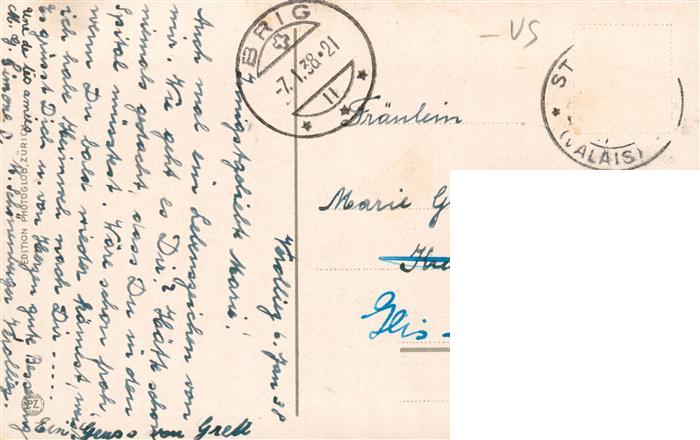 6. Jan 38
Innigstgeliebte Marie!
Auch mal ein Lebenszeichen von
mir. Wie geht es Dir? Hätte schon
niemals gedacht dass Du in den
Spital müsstest. Wäre schon froh
wenn Du bald wieder kämest,
ich hab Heimweh nach Dir....
Es grüsst Dich u. von Herzen gute Besserung
une de tes amies
M. G. Simone
Ein Gruss von Greti
EDITION PHOTOGLOB, ZÜRICH
PZ
BRIG
-7.I.38•21
II
VS
ST
(VALAIS)
Fräulein
Marie G
Glis